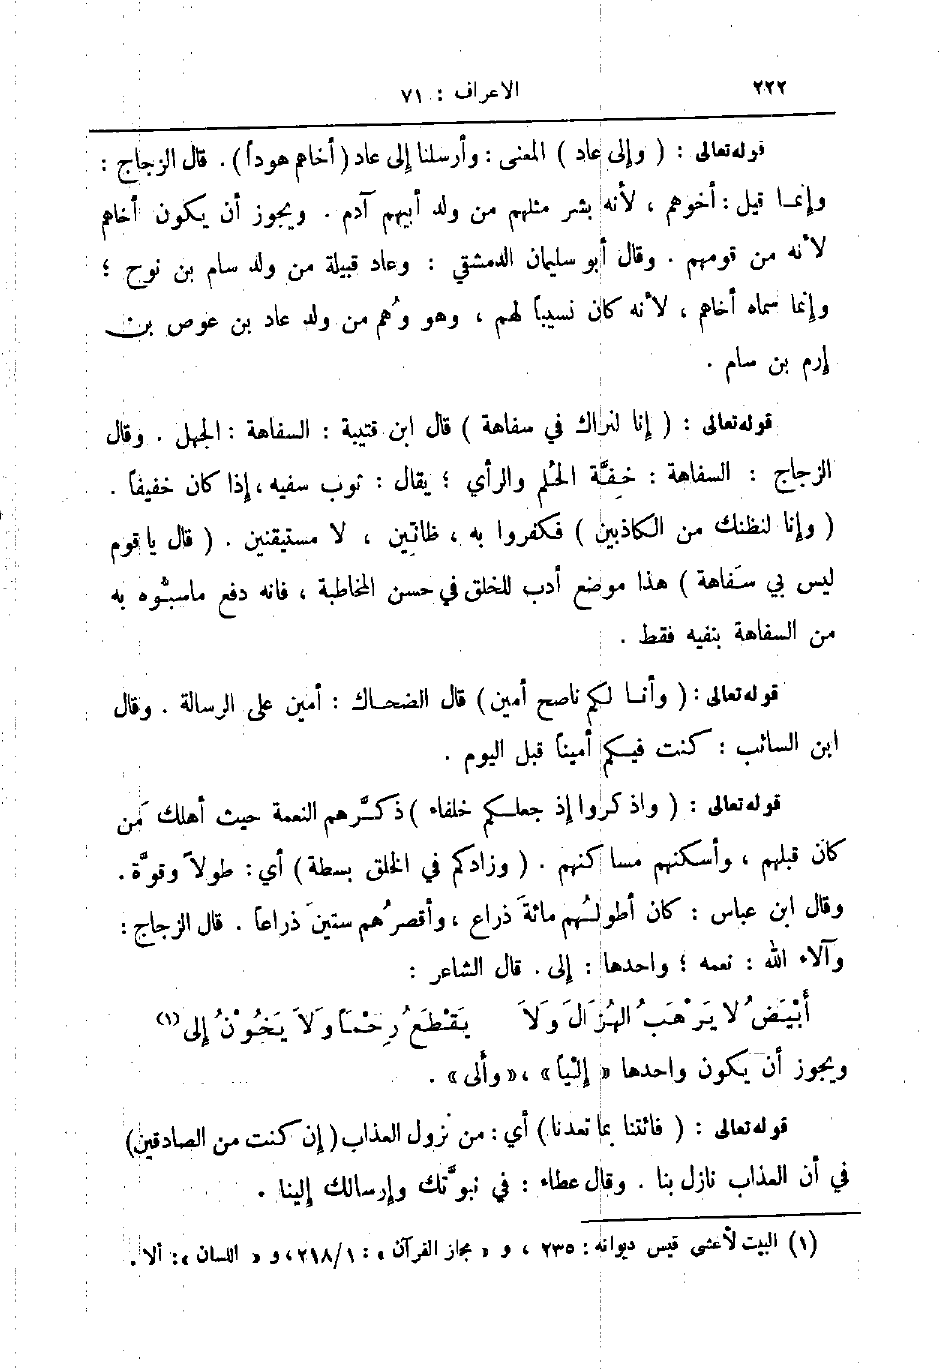 ٢٢٢ الاعراف : ٧١
قوله تعالى : ( وإلى عاد ) المعنى : وأرسلنا إلى عاد ( أخاهم هوداً ) . قال الزجاج :
وإنمـا قيل : أخوهم ، لأنه بشر مثلهم من ولد أبيهم آدم . ويجوز أن يكون أخاهم
لأنه من قومهم . وقال أبو سليمان الدمشقي : وعاد قبيلة من ولد سام بن نوح ؛
وإنما سماه أخاهم ، لأنه كان نسيباً لهم ، وهو وهُم من ولد عاد بن عوص بن
إرم بن سام .
قوله تعالى : ( إنا لنراك في سفاهة ) قال ابن قتيبة : السفاهة : الجهل . وقال
الزجاج : السفاهة : خِفَّة الحُلم والرأي ؛ يقال : ثوب سفيه ، إذا كان خفيفاً .
( وإنا لنظنك من الكاذبين ) فكفروا به ، ظانّين ، لا مستيقنين . ( قال يا قوم
ليس بي سَفاهة ) هذا موضع أدب للخلق في حسن المخاطبة ، فانه دفع ماسبُّوه به
من السفاهة بنفيه فقط .
قوله تعالى : ( وأنـا لكم ناصح أمين ) قال الضحـاك : أمين على الرسالة . وقال
ابن السائب : كنت فيـكم أميناً قبل اليوم .
قوله تعالى : ( واذكروا إذ جعلـكم خلفاء ) ذكَّرهم النعمة حيث أهلك مَن
كان قبلهم ، وأسكنهم مساكنهم . ( وزادكم في الخلق بسطة ) أي : طولاً وقوَّة .
وقال ابن عباس : كان أطولـُهم مائةَ ذراع ، وأقصرُهم ستينَ ذراعاً . قال الزجاج :
وآلاء الله : نعمه ؛ واحدها : إلى . قال الشاعر :
أَبْيَضُ لا يَرْهَبُ الهُزَالَ وَلاَ يَقْطَعُ رِحْمَاً وَلاَ يَخُوْنُ إلى (١)
ويجوز أن يكون واحدها « إلْياً » ، « وألى » .
قوله تعالى : ( فائتنا بما تعدنا ) أي : من نزول العذاب ( إن كنت من الصادقين )
في أن العذاب نازل بنا . وقال عطاء : في نبوَّتك وإرسالك إلينا .
(١) البيت لأعشى قيس ديوانه : ٢٣٥ ، و « مجاز القرآن » : ٢١٨/١ ، و « اللسان » : ألا .